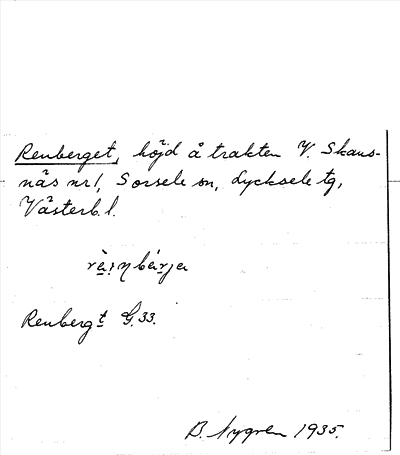 Renberget, höjd å trakten V. Skans-
näs nr 1, Sorsele sn, Lycksele tg,
Västerb. l.
Renbergt G. 33.
B. Nygren 1935.